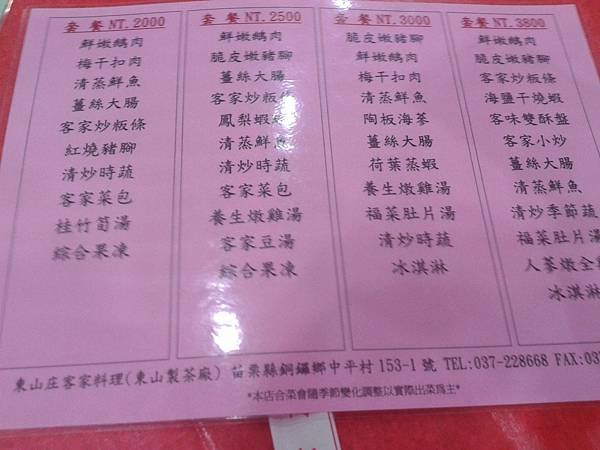 套餐NT.2000
鮮嫩鵝肉
梅干扣肉
清蒸鮮魚
薑絲大腸
客家炒粄條
紅燒豬腳
清炒時蔬
客家菜包
桂竹筍湯
綜合果凍
套餐NT.2500
鮮嫩鵝肉
脆皮嫩豬腳
薑絲大腸
客家炒粄條
鳳梨蝦
清蒸鮮魚
清炒時蔬
客家菜包
養生燉雞湯
客家豆湯
綜合果凍
套餐NT.3000
脆皮嫩豬腳
鮮嫩鵝肉
梅干扣肉
清蒸鮮魚
陶板海蔘
薑絲大腸
荷葉蒸蝦
養生燉雞湯
福菜肚片湯
清炒時蔬
冰淇淋
套餐NT.3800
鮮嫩鵝肉
脆皮嫩豬腳
客家炒粄條
海鹽干燒蝦
客味雙酥盤
客家小炒
薑絲大腸
清蒸鮮魚
清炒季節蔬
福菜肚片湯
人蔘燉全
冰淇淋
東山庄客家料理(東山製茶廠) 苗栗縣銅鑼鄉中平村153-1 號 TEL:037-228668 FAX:03
*本店合菜會隨季節變化調整以實際出菜為主*